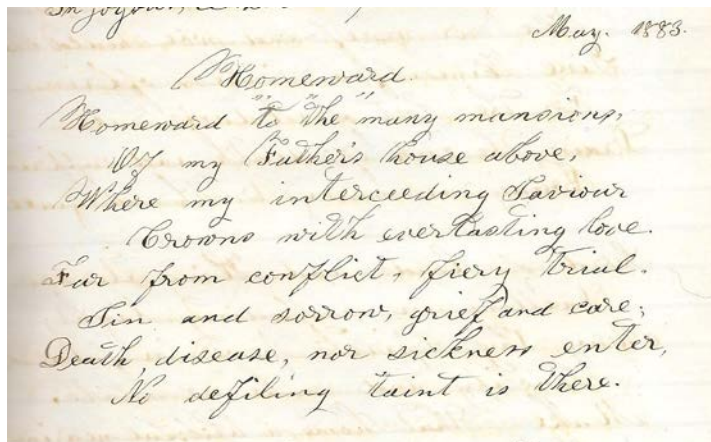 In joyous,
May. 1883.
Homeward.
Homeward to the many mansions,
Of my Father's house above,
Where my interceeding Saviour
Crowns with everlasting love.
Far from conflict, fiery trial.
Sin and sorrow, grief and care;
Death, disease, nor sickness enter,
No defiling taint is there.